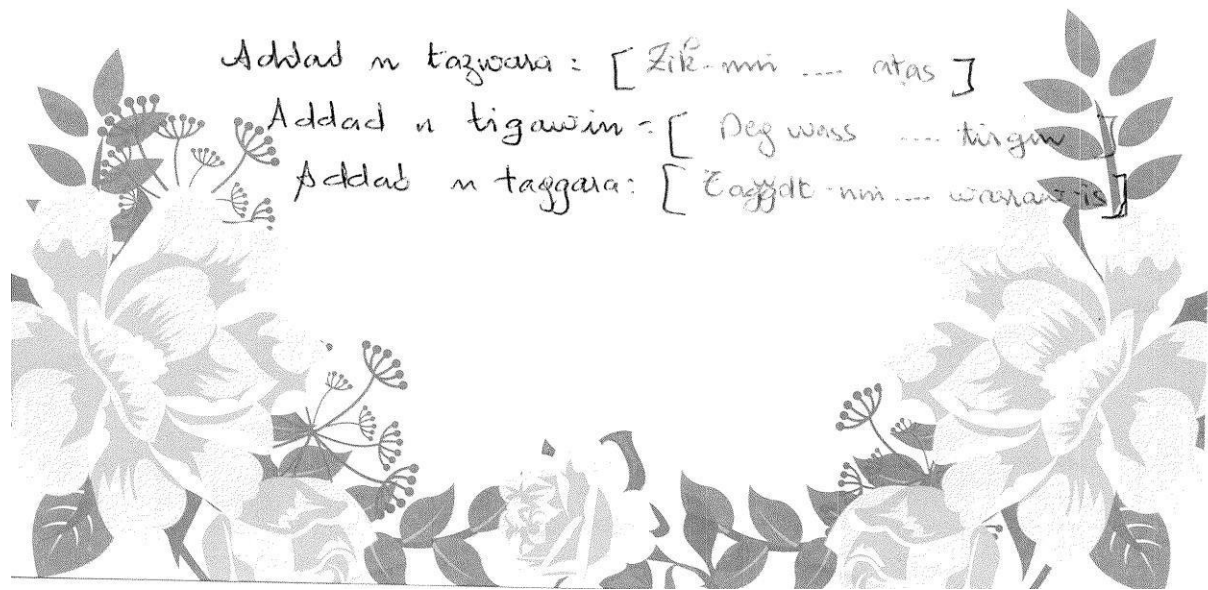 Addad n tazwara : [ Zik-nni .... aṭas ]
Addad n tigawin = [ Deg wass .... tirgin ]
Addad n taggara : [ nni .... warraw-is ]